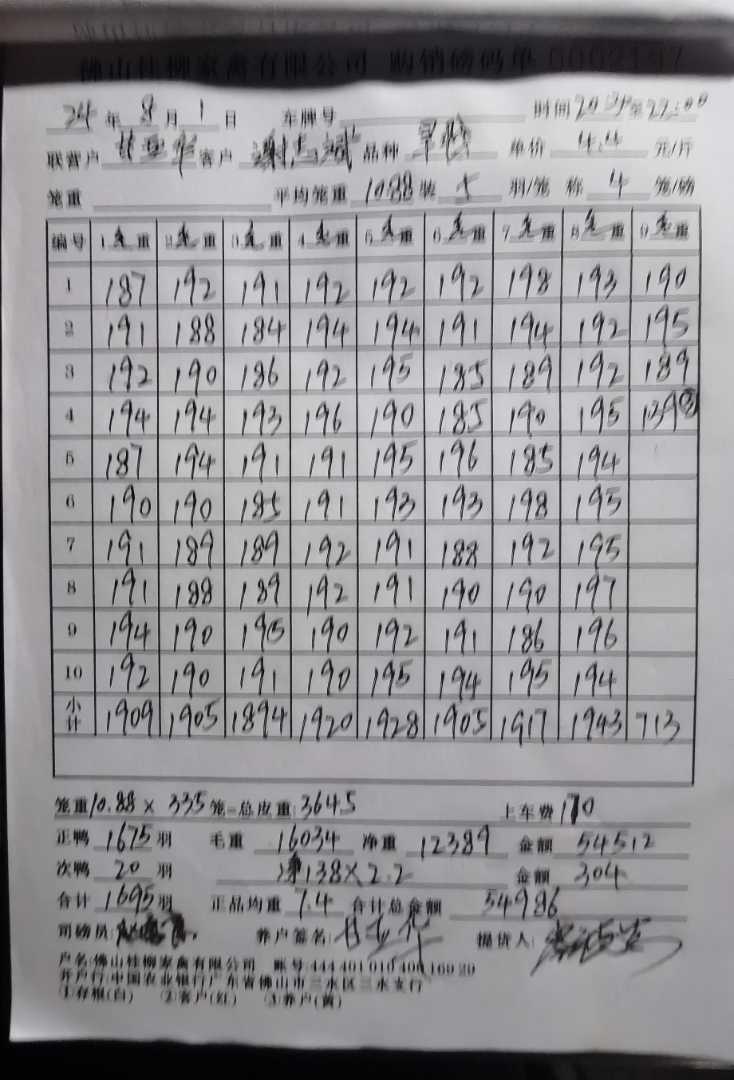 佛山桂柳家禽有限公司 购销磅码单 0002197
24 年 8 月 1 日 车牌号 时间 20:30 至 22:00
联营户 甘亚华 客户 谢志斌 品种 单价 4.4 元/斤
笼重 平均笼重 10.88 装 5 羽/笼 称 4 笼/磅
编号 1 毛重 2 毛重 3 毛重 4 毛重 5 毛重 6 毛重 7 毛重 8 毛重 9 毛重
1 187 192 191 192 192 192 198 193 190
2 191 188 184 194 194 191 194 192 195
3 192 190 186 192 195 185 189 192 189
4 194 194 193 196 190 185 190 195 139 ③
5 187 194 191 191 195 196 185 194
6 190 190 185 191 193 193 198 195
7 191 189 189 192 191 188 192 195
8 191 188 189 192 191 190 190 197
9 194 190 195 190 192 191 186 196
10 192 190 191 190 195 194 195 194
小计 1909 1905 1894 1920 1928 1905 1917 1943 713
笼重 10.88 × 335 笼=总皮重: 3645 上车费 170
正鸭 1675 羽 毛重 16034 净重 12389 金额 54512
次鸭 20 羽 净 138×2.2 金额 304
合计 1695 羽 正品均重 7.4 合计总金额 54986
司磅员: 养户签名: 甘亚华 提货人:
户名:佛山桂柳家禽有限公司 账号:444 401 010 400 169 20
开户行:中国农业银行广东省佛山市三水区三水支行
①存根(白) ②客户(红) ③养户(黄)